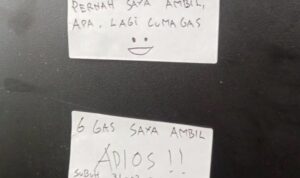 PERNAH SAYA AMBIL,
APA. LAGI CUMA GAS
6 GAS SAYA AMBIL
ADIOS !!
SUBUH